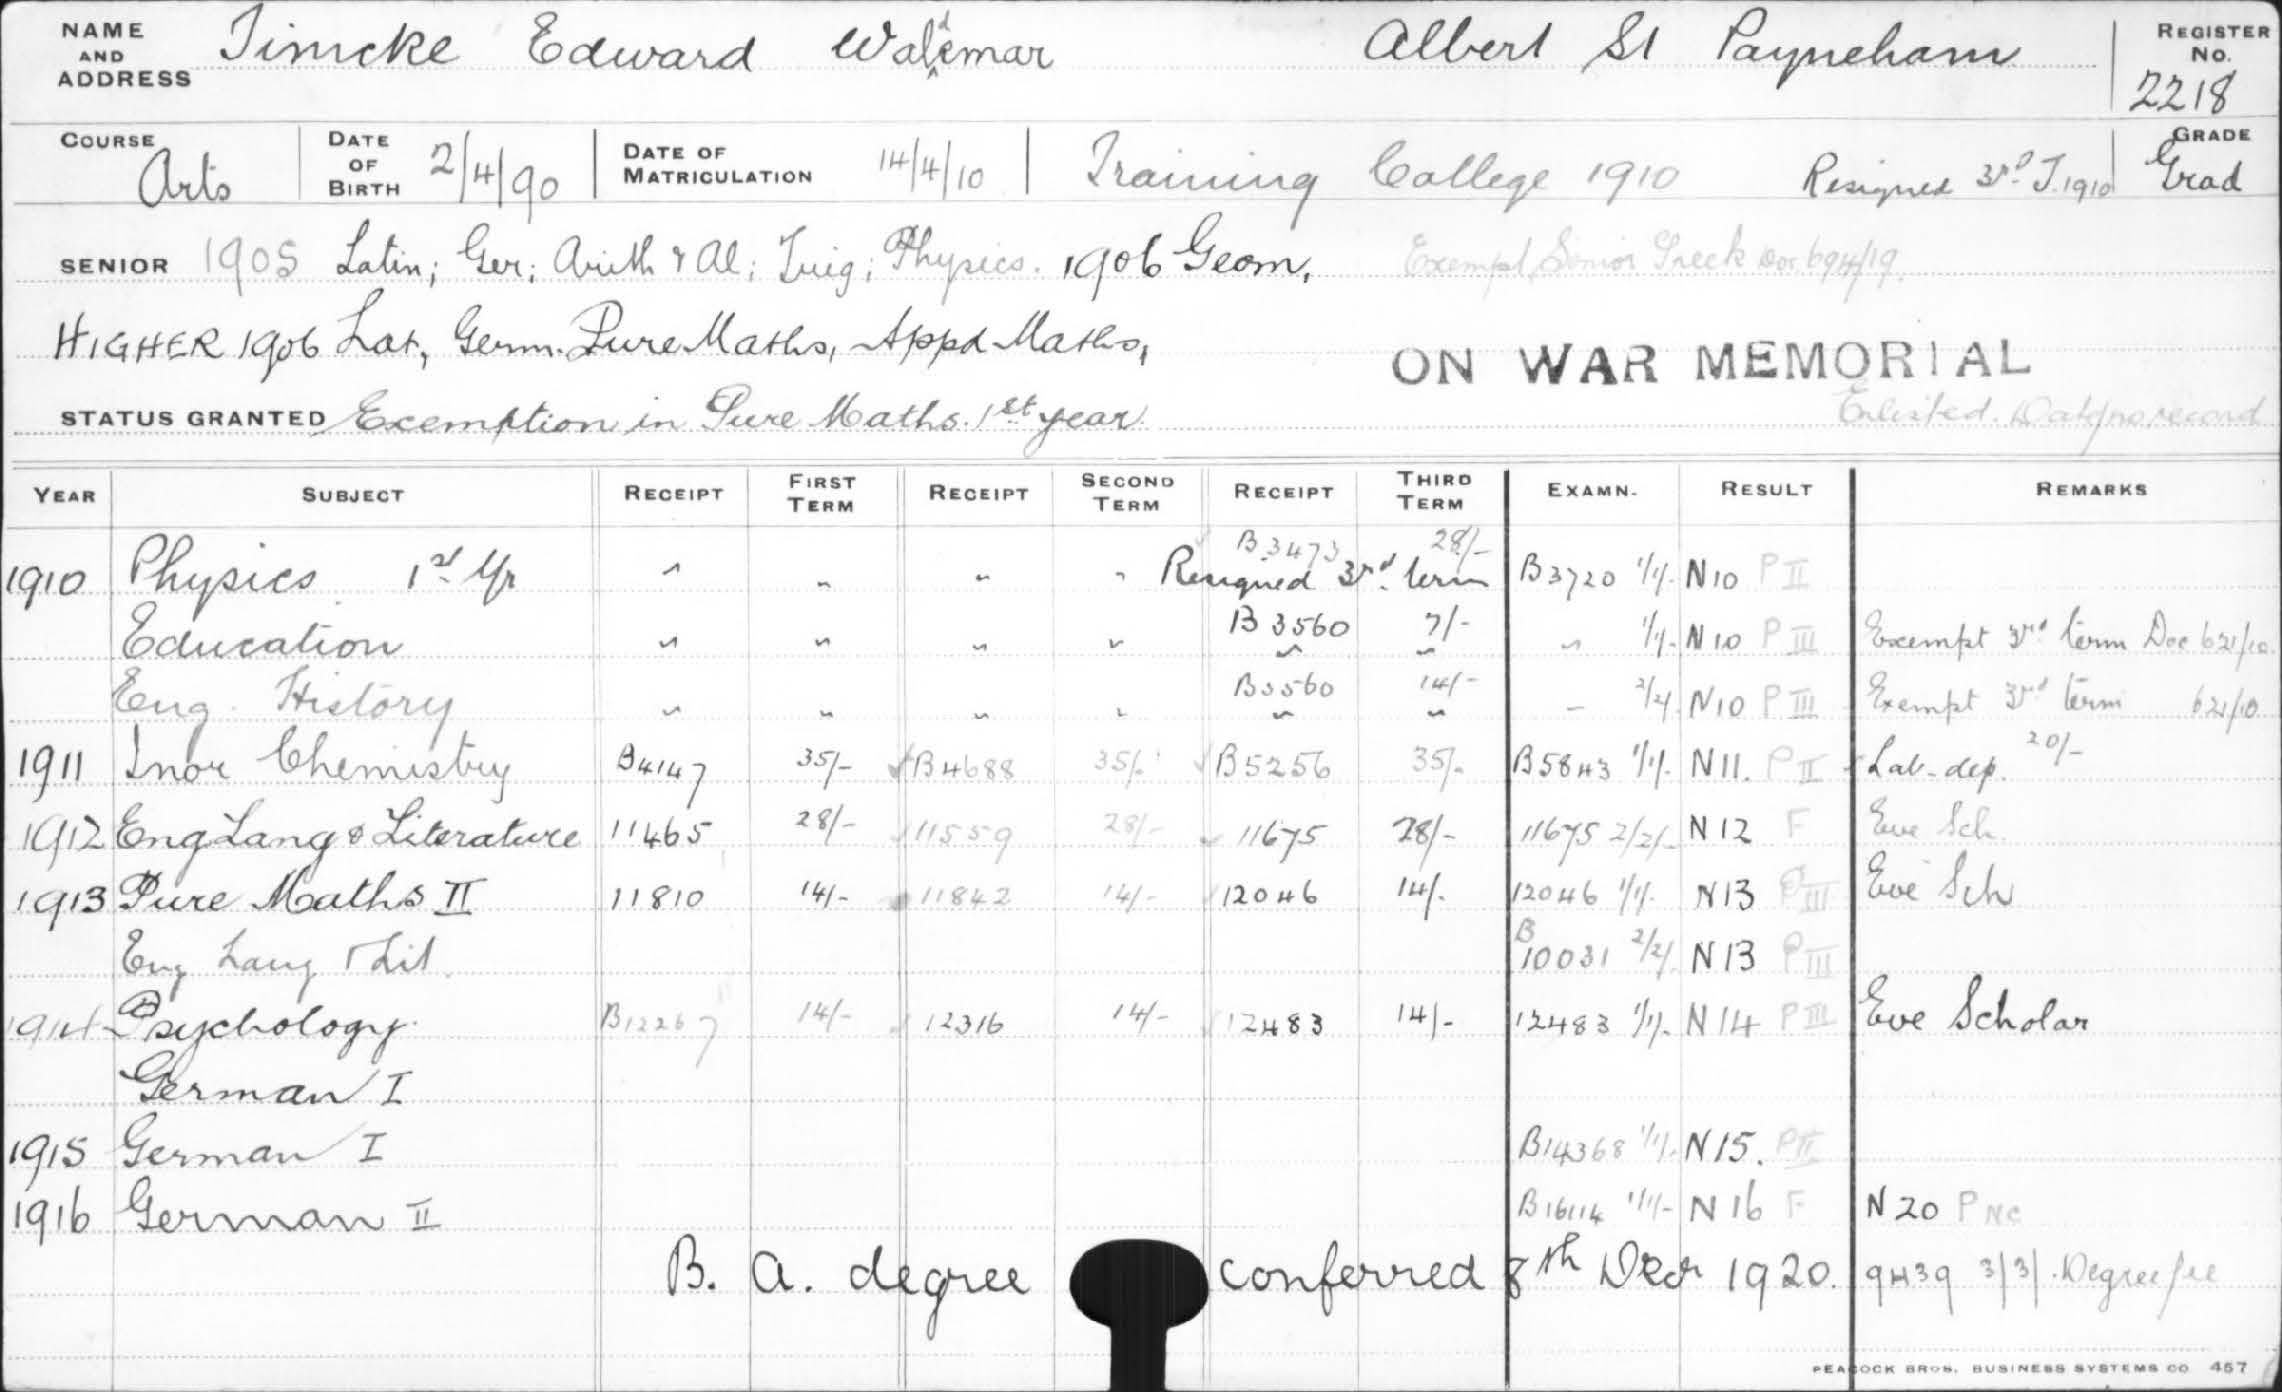 NAME AND ADDRESS Timcke Edward Waldemar Albert St Payneham REGISTER No. 2218
COURSE Arts DATE OF BIRTH 2/4/90 DATE OF MATRICULATION 14/4/10 Training College 1910 Resigned 3rd T. 1910 GRADE Grad
SENIOR 1905 Latin; Ger; Arith & Al; Trig; Physics. 1906 Geom, Exempt Senior Greek Doc 694/19.
HIGHER 1906 Lat, Germ. Pure Maths, Appd Maths,
ON WAR MEMORIAL
STATUS GRANTED Exemption in Pure Maths. 1st year Enlisted. Date no record
YEAR SUBJECT RECEIPT FIRST TERM RECEIPT SECOND TERM RECEIPT THIRD TERM EXAMN. RESULT REMARKS
B3473 28/-
1910 Physics 1st Yr " " " " Resigned 3rd term B3720 1/1/- N10 P II
Education " " " " B 3560 " 7/- " " 1/1/- N10 P III Exempt 3rd term Doc 621/10.
Eng. History " " " " B3560 " 14/- " – 2/2/- N10 P III Exempt 3rd term 621/10
1911 Inor Chemistry B4147 35/- B4688 35/- B5256 35/- B5843 1/1/- N11. P II Lab. dep. 20/-
1912 Eng Lang & Literature 11465 28/- 11559 28/- 11675 28/- 11675 2/2/- N12 F Eve Sch.
1913 Pure Maths II 11810 14/- 11842 14/- 12046 14/- 12046 1/1/- N13 P III Eve Sch
Eng Lang & Lit. B 10031 2/2/- N13 P III
1914 Psychology. B12267 14/- 12316 14/- 12483 14/- 12483 1/1/- N14 P III Eve Scholar
German I
1915 German I B14368 1/1/- N15. P II
1916 German II B16114 1/1/- N16 F N20 P NC
B. A. degree conferred 8th Decr 1920. 9439 3/3/- Degree fee
PEACOCK BROS. BUSINESS SYSTEMS CO 457